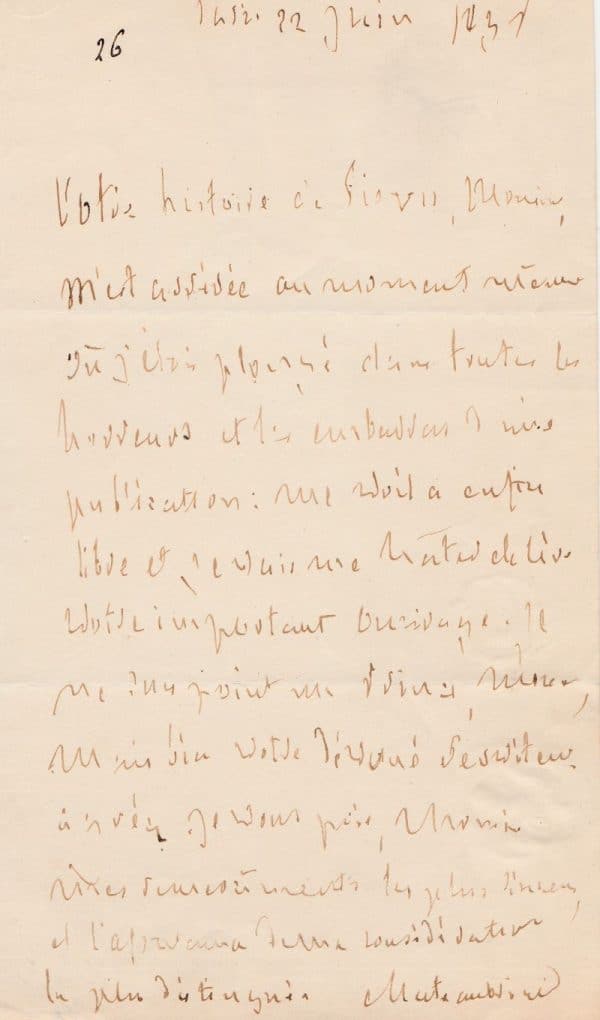 Paris 22 Juin
26
Votre histoire de Pie VII, Monsieur,
m'est arrivée au moment même
où j'étois plongé dans toutes les
horreurs et les embarras d'une
publication: me voilà enfin
libre et je vais me hâter de lire
votre important ouvrage. Je
ne suis point un Monsieur,
mais bien votre dévoué serviteur
agréez je vous prie, Monsieur
mes remerciements les plus sincères,
et l'assurance de ma considération
la plus distinguée Chateaubriand